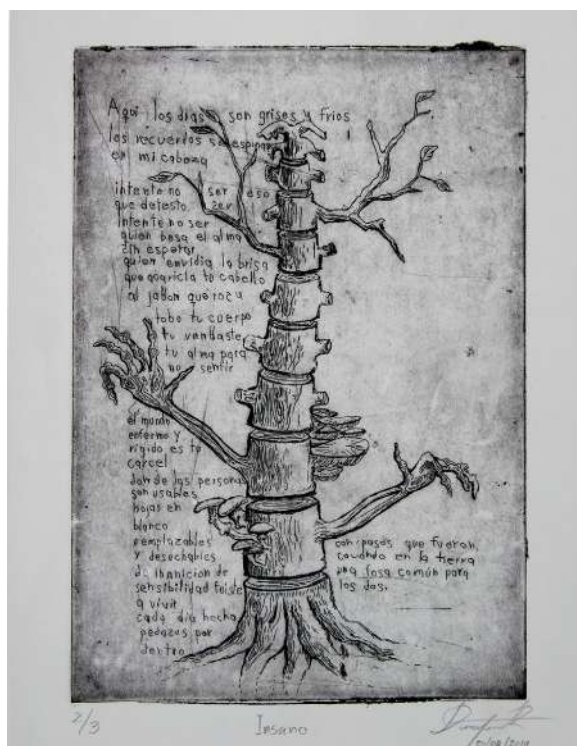 Aqui los dias son grises y frios
los recuerdos se espinan
en mi cabeza
intente no ser eso
que detesto ser
intente no ser
quien besa el alma
sin esperar
quien envidia la brisa
que acaricia tu cabello
al jabon que roza
todo tu cuerpo
tu vendaste
tu alma para
no sentir
el mundo
enfermo y
rigido es tu
carcel
donde las personas
son usables
hojas en
blanco
remplazables
y desechables
de inanicion de
sensibilidad fuiste
a vivir
cada dia hecha
pedazos por
dentro
con pasos que fueron
cavando en la tierra
una fosa común para
los dos.
2/3
Insano